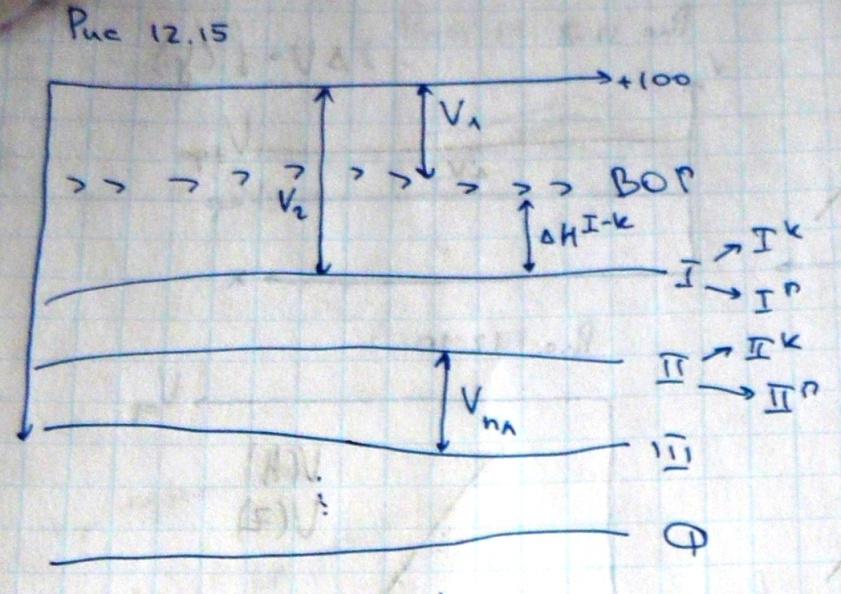 Рис 12.15
+100
V₁
> > > > > > > > > > ВОГ
V₂
ΔH^I-k
I
I^k
I^п
II
II^k
II^п
V_пл
III
Ф